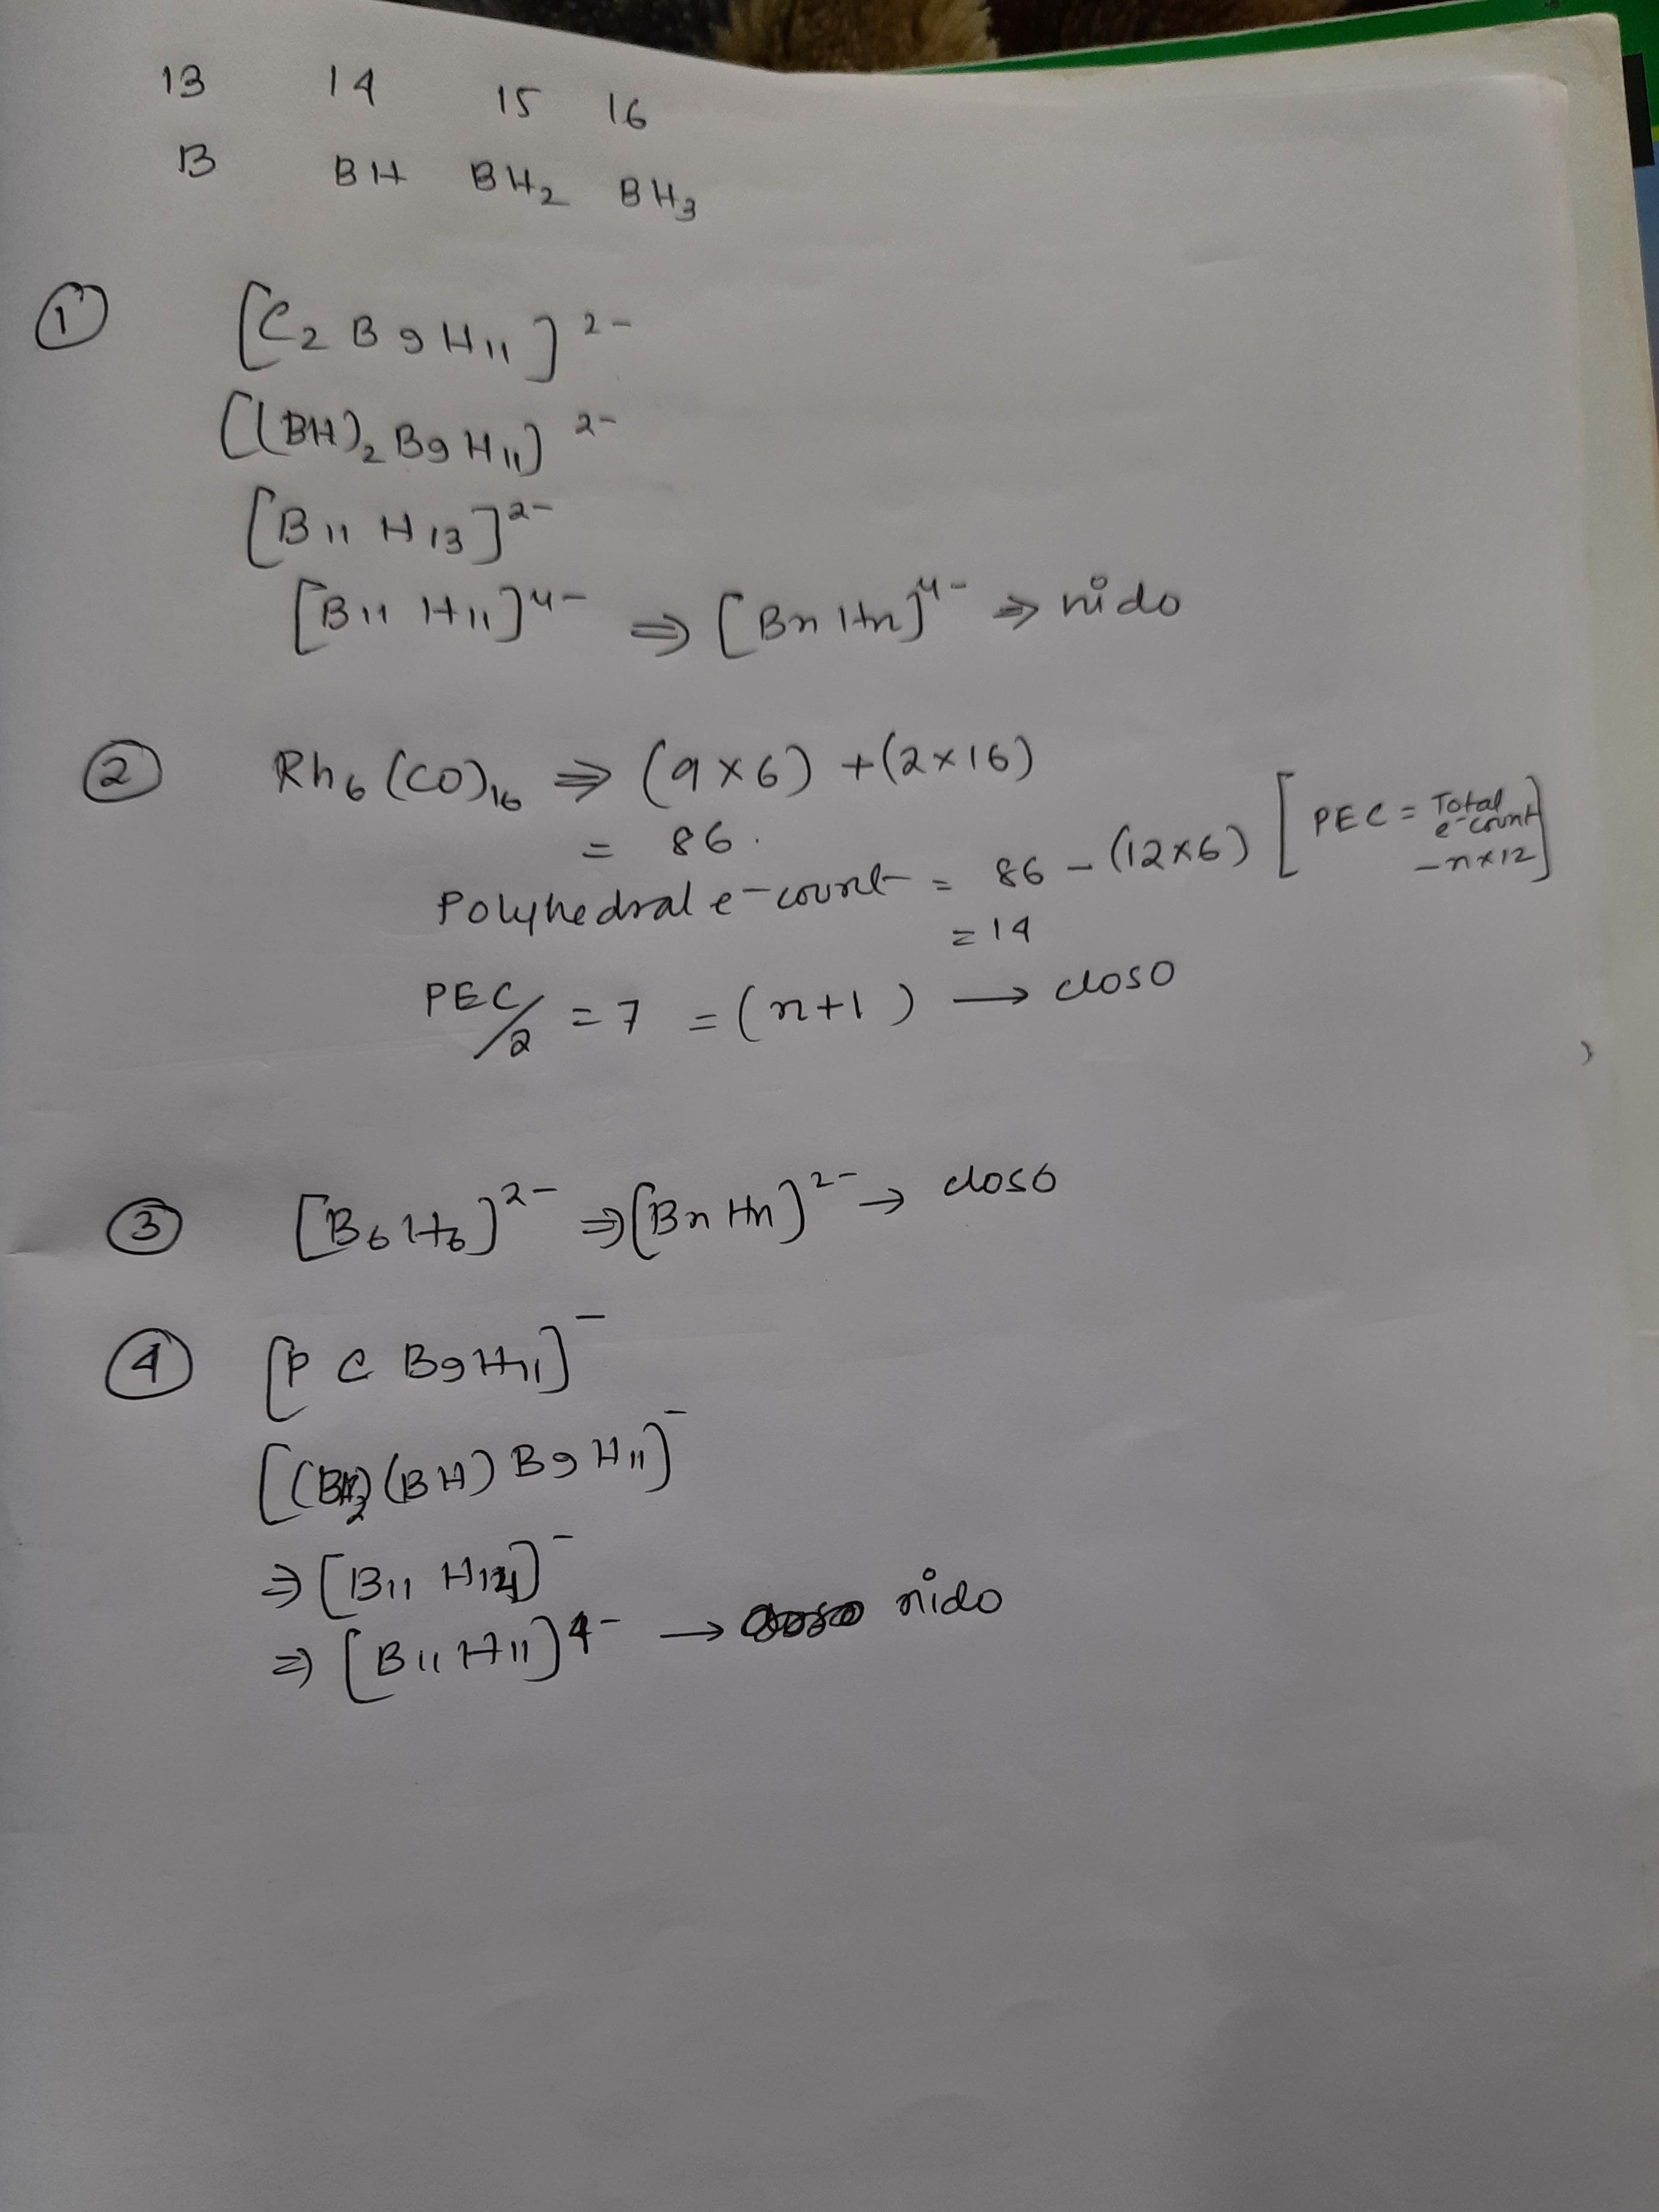 13 14 15 16
B BH BH₂ BH₃
① [C₂B₉H₁₁]²⁻
[(BH)₂B₉H₁₁]²⁻
[B₁₁H₁₃]²⁻
[B₁₁H₁₁]⁴⁻ ⇒ [BnHn]⁴⁻ ⇒ nido
② Rh₆(CO)₁₆ ⇒ (9×6) + (2×16)
= 86.
Polyhedral e⁻count = 86 - (12×6) [PEC = Total e⁻count - n×12]
= 14
PEC/2 = 7 = (n+1) → closo
③ [B₆H₆]²⁻ ⇒ [BnHn]²⁻ → closo
④ [P C B₉H₁₁]⁻
[(BH₂)(BH)B₉H₁₁]⁻
⇒ [B₁₁H₁₄]⁻
⇒ [B₁₁H₁₁]⁴⁻ → nido